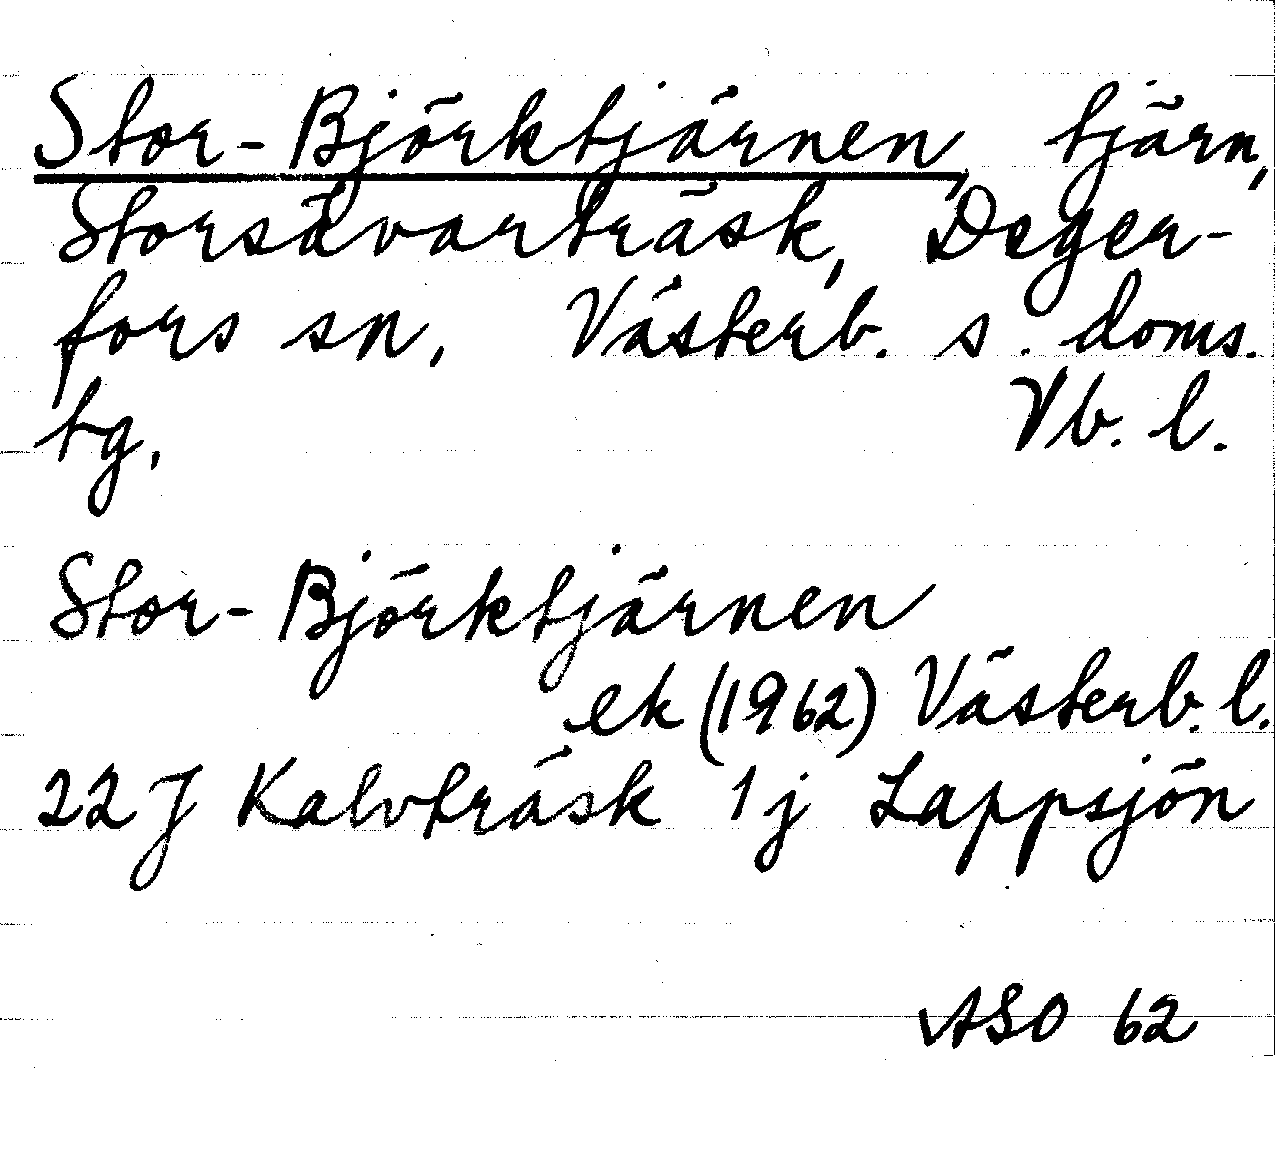 Stor-Björktjärnen, tjärn,
Storsävarträsk, Deger-
fors sn, Västerb. s. doms.
tg, Vb. l.
Stor-Björktjärnen
ek (1962) Västerb. l.
22J Kalvträsk 1j Lappsjön
ASO 62